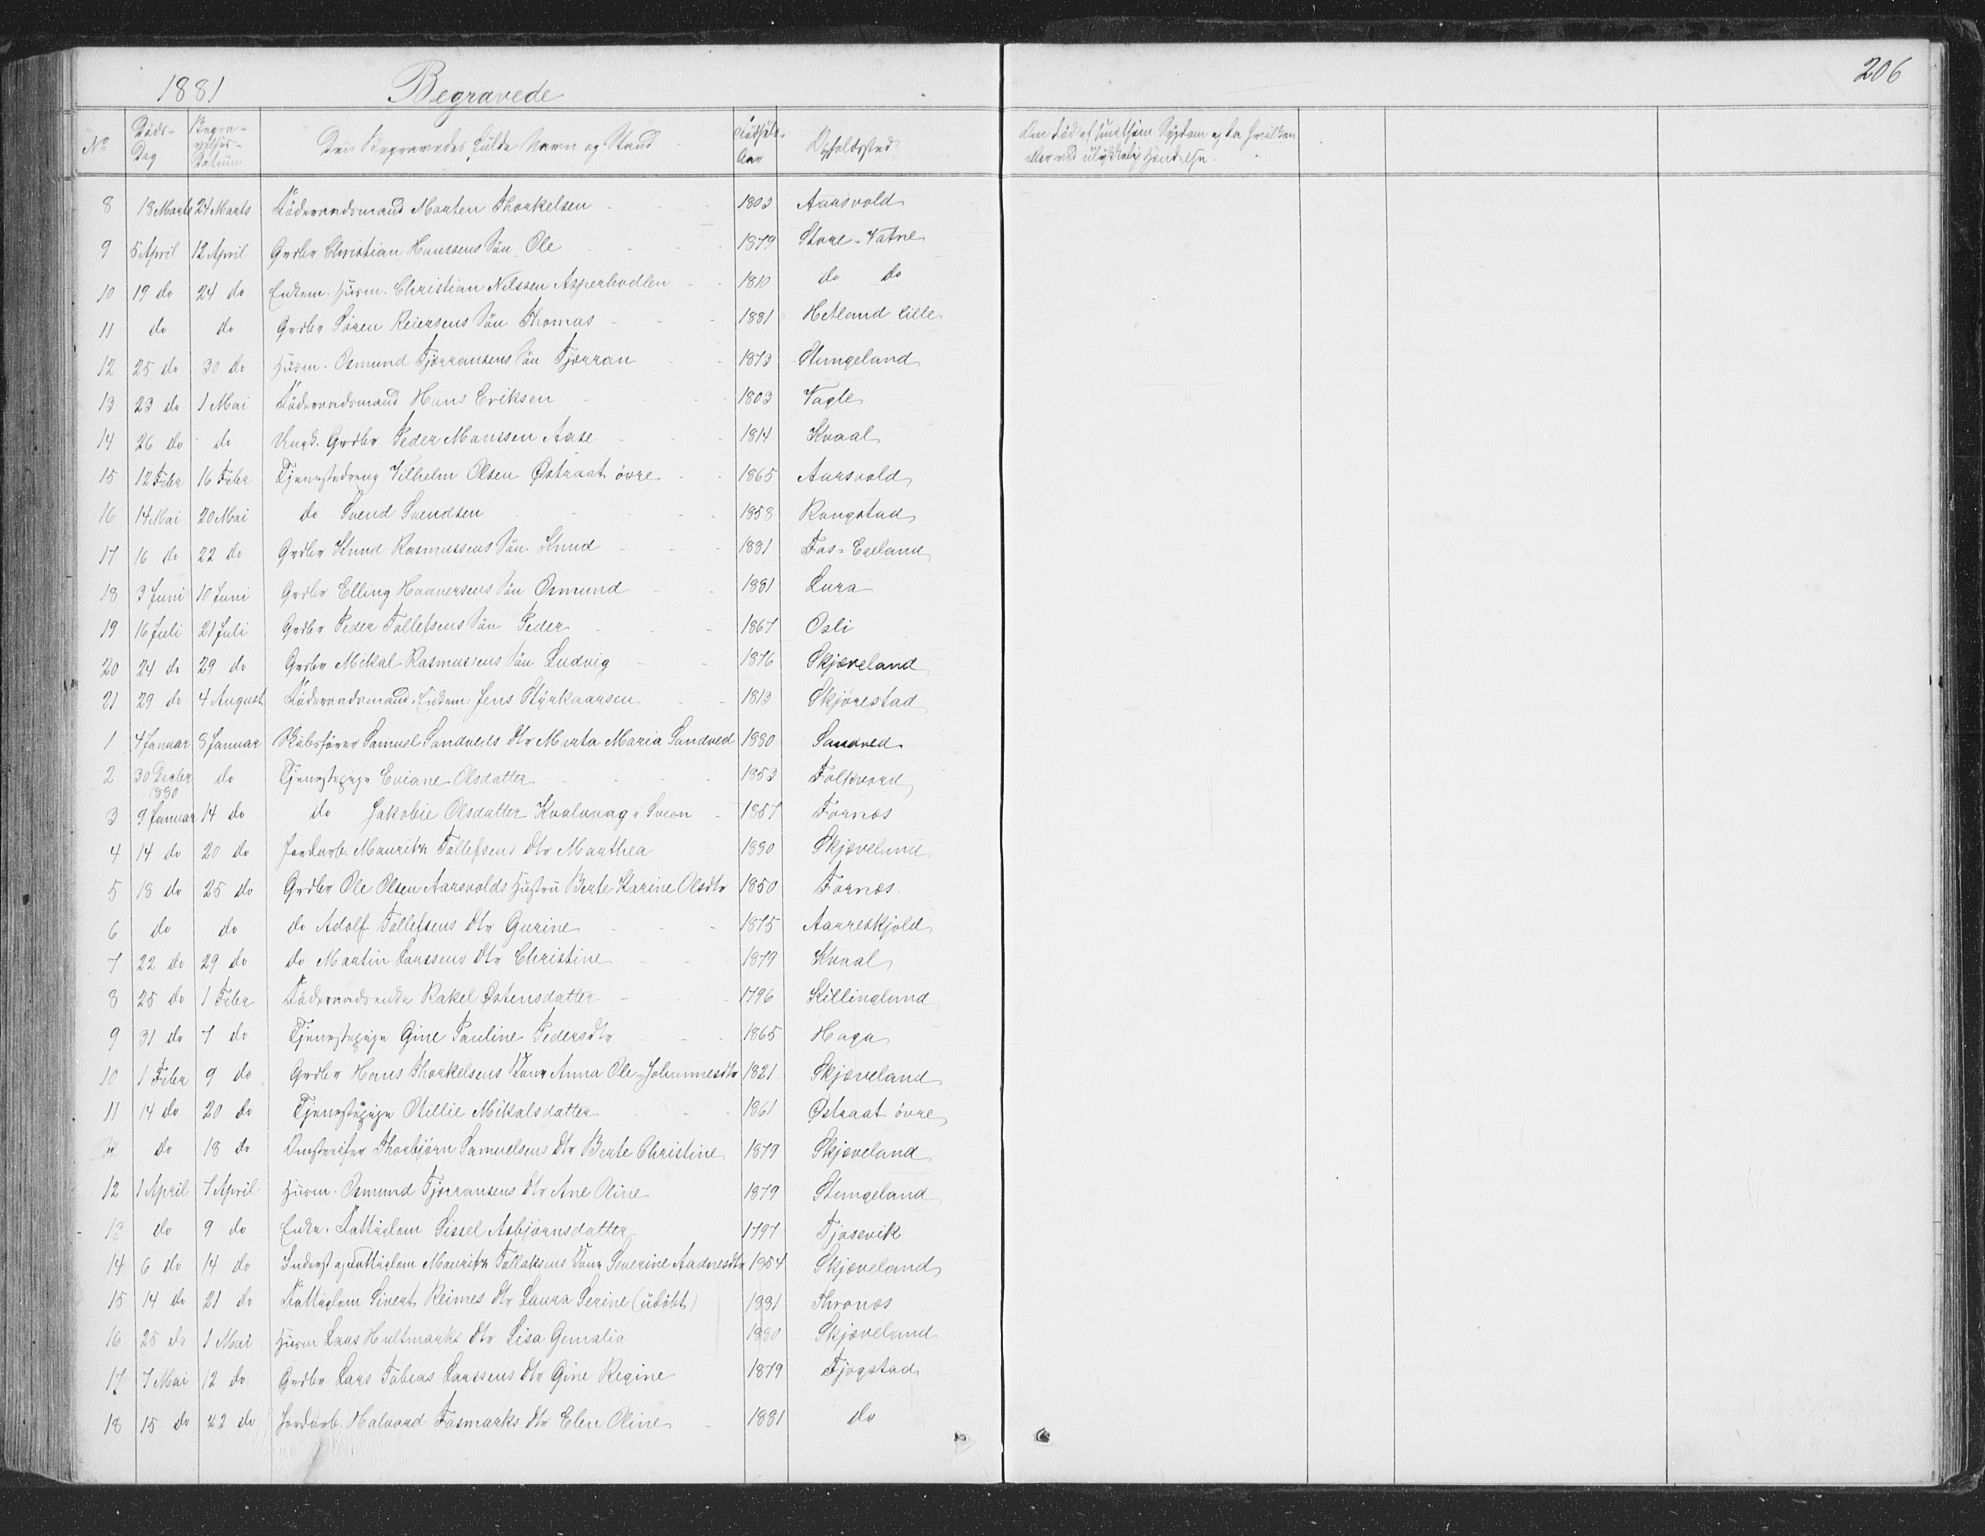 206
1881 Begravede
No Døds-Dag Begravelses-Datum Den Begravedes fulde Navn og Stand Fødsels-Aar Opholdssted Den død af smitsom Sygdom og da hvilken eller ved ulykkelig Hændelse.
8 18 Marts 24 Marts Føderaadsmand Morten Thorkelsen 1803 Aarsvold
9 5 April 12 April Grdbr Christian Hanssens Søn Ole 1879 Store-Vatne
10 19 do 24 do Enkem. Husm. Christian Nilssen Asperhodlen 1810 do do
11 do do Grdbr Søren Reiersens Søn Thomas 1881 Hetland lille
12 25 do 30 do Husm. Osmund Tjørransens Søn Tjørran 1873 Stangeland
13 23 do 1 Mai Føderaadsmand Hans Eriksen 1803 Vagle
14 26 do do Ungk. Grdbr Peder Monssen Aase 1814 Kvaal
15 12 Febr 16 Febr Tjenestedreng Vilhelm Olsen Østraat øvre 1865 Aarsvold
16 14 Mai 20 Mai do Svend Svendsen 1858 Rongstad
17 16 do 22 do Grdbr Knud Rasmussens Søn Knud 1881 Fos-Egeland
18 3 Juni 10 Juni Grdbr Elling Haaversens Søn Osmund 1881 Lura
19 16 Juli 21 Juli Grdbr Peder Tollefsens Søn Peder 1867 Osli
20 24 do 29 do Grdbr Mikal Rasmussens Søn Ludvig 1876 Skjæveland
21 29 do 4 August Føderaadsmand, Enkem: Jens Styrkaarsen 1813 Skjørestad
1 4 Januar 8 Januar Skibsfører Samuel Sandveds Dtr Marta Maria Sandved 1880 Sandved
2 30 Decbr 1880 do Tjenestepige Eviane Olsdatter 1853 Folkvord
3 9 Januar 14 do do Jakobie Olsdatter Kvalvaag i Sveen 1857 Fornæs
4 14 do 20 do Jordarb. Mauritz Tollefsens Dtr Marthea 1880 Skjæveland
5 18 do 25 do Grdbr Ole Olsen Aarsvolds Hustru Berte Karine Olsdtr 1850 Fornæs
6 do do do Adolf Tollefsens Dtr Gurine 1875 Aarreskjold
7 22 do 29 do do Martin Larssens Dtr Christine 1879 Kvaal
8 25 do 1 Febr Føderaadsenke Rakel Østensdatter 1796 Killingland
9 31 do 7 do Tjenestepige Gine Pauline Pedersdtr 1865 Haga
10 1 Febr 9 do Grdbr Hans Thorkelsens Kone Anna Ole-Johannesdtr 1821 Skjæveland
11 14 do 20 do Tjenestepige Otillie Mikalsdatter 1861 Østraat øvre
do 18 do Thorbjørn Samuelsens Dtr Berte Christine 1879 Skjæveland
12 1 April 7 April Husm. Osmund Tjørransens Dtr Ane Oline 1879 Stangeland
13 do 9 do Enke, Fattiglem Sissel Asbjørnsdatter 1797 Tjosevik
14 6 do 14 do Inderst og Fattiglem Mauritz Tollaksens Kone Severine Aadnesdtr 1854 Skjæveland
15 14 do 21 do Fattiglem Sivert Reimes Dtr Laura Serine (udøbt) 1881 Thronæs
16 25 do 1 Mai Husm Lars Hultmarks Dtr Lisa Gunalia 1880 Skjæveland
17 7 Mai 12 do Grdbr Lars Tobias Larssens Dtr Gine Regine 1879 Fjogstad
18 15 do 22 do Jordarb. Halvord Fosmarks Dtr Elen Oline 1881 do